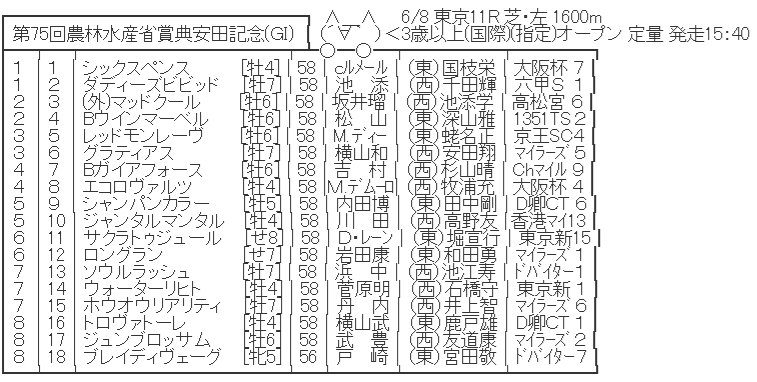 第75回農林水産省賞典安田記念(GI) 6/8 東京11R 芝・左 1600m
(´∀｀) <3歳以上(国際)(指定)オープン 定量 発走15:40
1 1 シックスペンス [牡4] 58 cルメール (東)国枝栄 大阪杯 7
1 2 ダディーズビビッド [牡7] 58 池 添 (西)千田輝 六甲S 1
2 3 (外)マッドクール [牡6] 58 坂井瑠 (西)池添学 高松宮 6
2 4 Bウインマーベル [牡6] 58 松 山 (東)深山雅 1351TS 2
3 5 レッドモンレーヴ [牡6] 58 M.ディー (東)蛯名正 京王SC4
3 6 グラティアス [牡7] 58 横山和 (西)安田翔 マイラーズ 5
4 7 Bガイアフォース [牡6] 58 吉 村 (西)杉山晴 Chマイル 9
4 8 エコロヴァルツ [牡4] 58 M.デムーロ (西)牧浦充 大阪杯 4
5 9 シャンパンカラー [牡5] 58 内田博 (東)田中剛 D卿CT 6
5 10 ジャンタルマンタル [牡4] 58 川 田 (西)高野友 香港マイ13
6 11 サクラトゥジュール [せ8] 58 D・レーン (東)堀宣行 東京新15
6 12 ロングラン [せ7] 58 岩田康 (東)和田勇 マイラーズ 1
7 13 ソウルラッシュ [牡7] 58 浜 中 (西)池江寿 ドバイター1
7 14 ウォーターリヒト [牡4] 58 菅原明 (西)石橋守 東京新 1
7 15 ホウオウリアリティ [牡7] 58 丹 内 (西)井上智 マイラーズ 6
8 16 トロヴァトーレ [牡4] 58 横山武 (東)鹿戸雄 D卿CT 1
8 17 ジュンブロッサム [牡6] 58 武 豊 (西)友道康 マイラーズ 2
8 18 ブレイディヴェーグ [牝5] 56 戸 崎 (東)宮田敬 ドバイター7